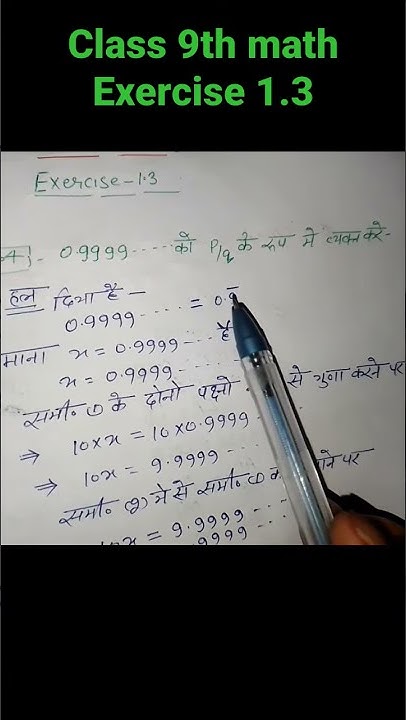 Class 9th math
Exercise 1.3
Exercise-1.3
4 - 0.9999..... को P/q के रूप मे व्यक्त करे-
हल दिया है-
0.9999..... = 0.9̅
माना x = 0.9999.... है
x = 0.9999.....
समी० (1) के दोनो पक्षो से गुणा करने पर
⇒ 10×x = 10×0.9999
⇒ 10x = 9.9999...
समी० (2) मे से समी० (1) पर
= 9.9999....
9999...